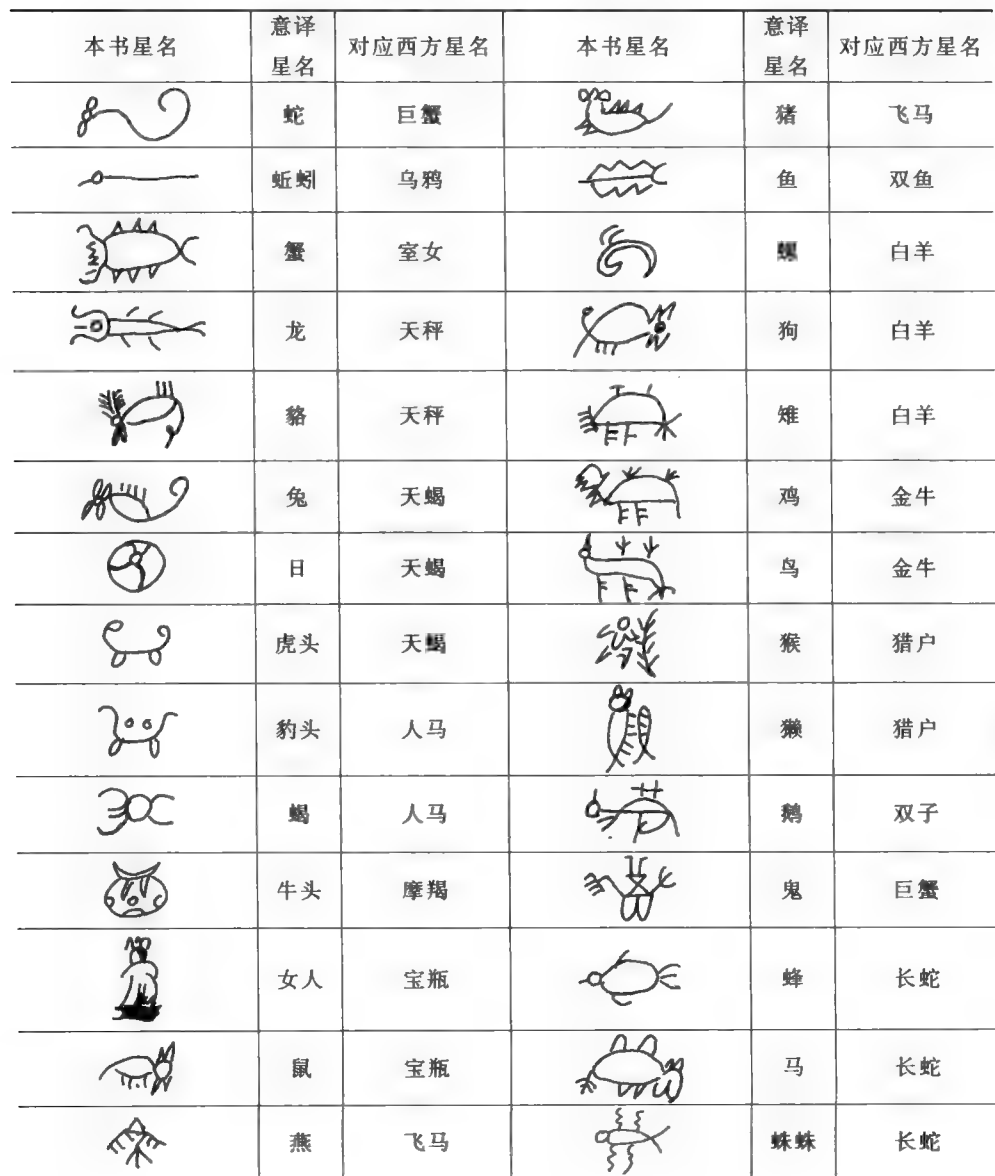 本书星名 意译星名 对应西方星名 本书星名 意译星名 对应西方星名
蛇 巨蟹 猪 飞马
蚯蚓 乌鸦 鱼 双鱼
蟹 室女 白羊
龙 天秤 狗 白羊
貉 天秤 雉 白羊
兔 天蝎 鸡 金牛
日 天蝎 鸟 金牛
虎头 天蝎 猴 猎户
豹头 人马 獭 猎户
蝎 人马 鹅 双子
牛头 摩羯 鬼 巨蟹
女人 宝瓶 蜂 长蛇
鼠 宝瓶 马 长蛇
燕 飞马 蛛蛛 长蛇